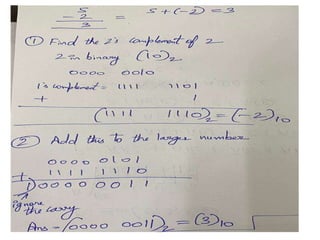 5
- 2 = 5 + (-2) = 3
3
① Find the 2's complement of 2
2 in binary (10)₂
0000 0010
1's complement = 1111 1101
+ 1
(1111 1110)₂ = (-2)₁₀
② Add this to the larger number
0000 0101
+ 1111 1110
1) 0000 0011
ignore
the carry
Ans - (0000 0011)₂ = (3)₁₀